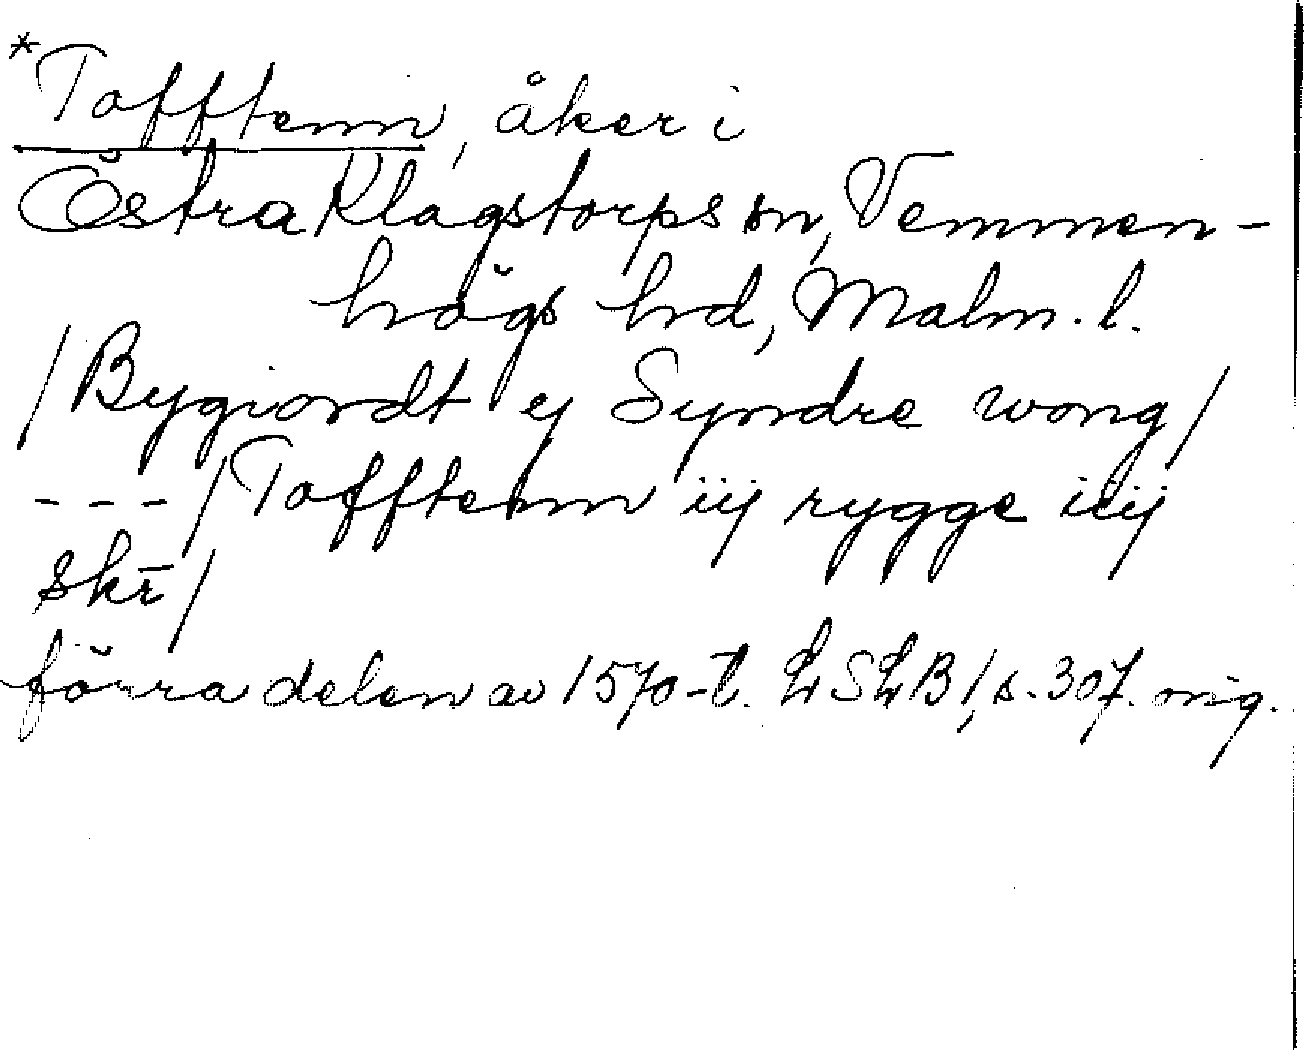 *Tofftenn, åker i
Östra Klagstorps sn, Vemmen-
högs hd, Malm. l.
/Bygiordt ej Syndre wong/
---/Tofftenn iij rygge iiij
skr̄/
förra delen av 1570-t. LSLB 1, s. 307. orig.